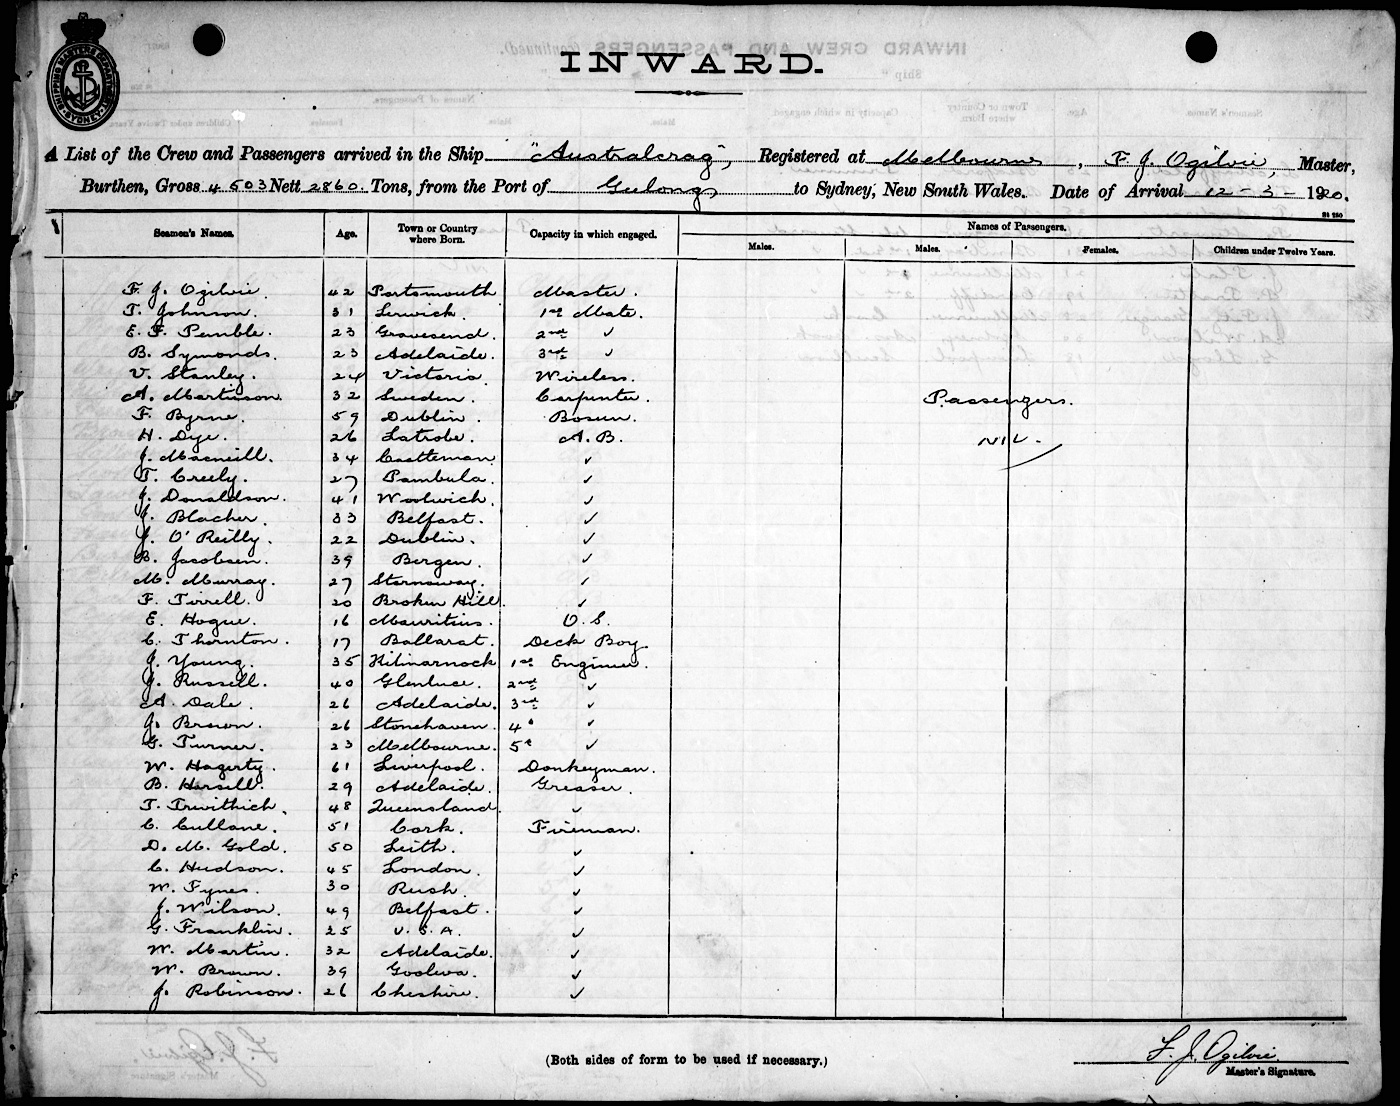 SHIPPING MASTERS DEPARTMENT SYDNEY
INWARD.
A List of the Crew and Passengers arrived in the Ship "Australcrag", Registered at Melbourne, F. J. Ogilvie, Master,
Burthen, Gross 4503 Nett 2860. Tons, from the Port of Geelong, to Sydney, New South Wales. Date of Arrival 12-3-1920.
Seamen's Names. Age. Town or Country where Born. Capacity in which engaged. Names of Passengers.
Males. Males. Females. Children under Twelve Years.
F. J. Ogilvie. 42 Portsmouth Master.
T. Johnson. 31 Lerwick. 1st Mate.
E. F. Pemble. 23 Gravesend. 2nd ✓
B. Symonds. 23 Adelaide. 3rd ✓
V. Stanley. 24 Victoria Wireless.
A. Martinson. 32 Sweden. Carpenter. Passengers.
F. Byrne. 59 Dublin. Bosun.
H. Dye. 26 Latrobe. A.B. NIL.
J. Macneill. 34 Castleman ✓
T. Creely. 27 Pambula. ✓
J. Donaldson. 41 Woolwich. ✓
J. Blacher. 33 Belfast. ✓
J. O'Reilly. 22 Dublin. ✓
B. Jacobsen. 39 Bergen. ✓
M. Murray. 27 Stornaway. ✓
F. Tirrell. 20 Broken Hill. ✓
E. Hogue. 16 Mauritius. O.S.
C. Thornton. 17 Ballarat. Deck Boy
J. Young. 35 Kilmarnock 1st Engineer.
J. Russell. 40 Glenluce. 2nd ✓
A. Dale. 26 Adelaide. 3rd ✓
J. Brown. 26 Stonehaven. 4" ✓
G. Turner. 23 Melbourne. 5t ✓
W. Hagerty. 61 Liverpool. Donkeyman.
B. Hersell. 29 Adelaide. Greaser.
T. Trwithich. 48 Queensland. ✓
C. Cullane. 51 Cork. Fireman.
D. M. Gold. 50 Leith. ✓
C. Hudson. 45 London. ✓
W. Fynes. 30 Rush. ✓
J. Wilson. 49 Belfast. ✓
G. Franklin. 25 U.S.A. ✓
W. Martin. 32 Adelaide. ✓
W. Brown. 39 Goolwa. ✓
J. Robinson. 26 Cheshire. ✓
(Both sides of form to be used if necessary.)
F. J. Ogilvie.
Master's Signature.